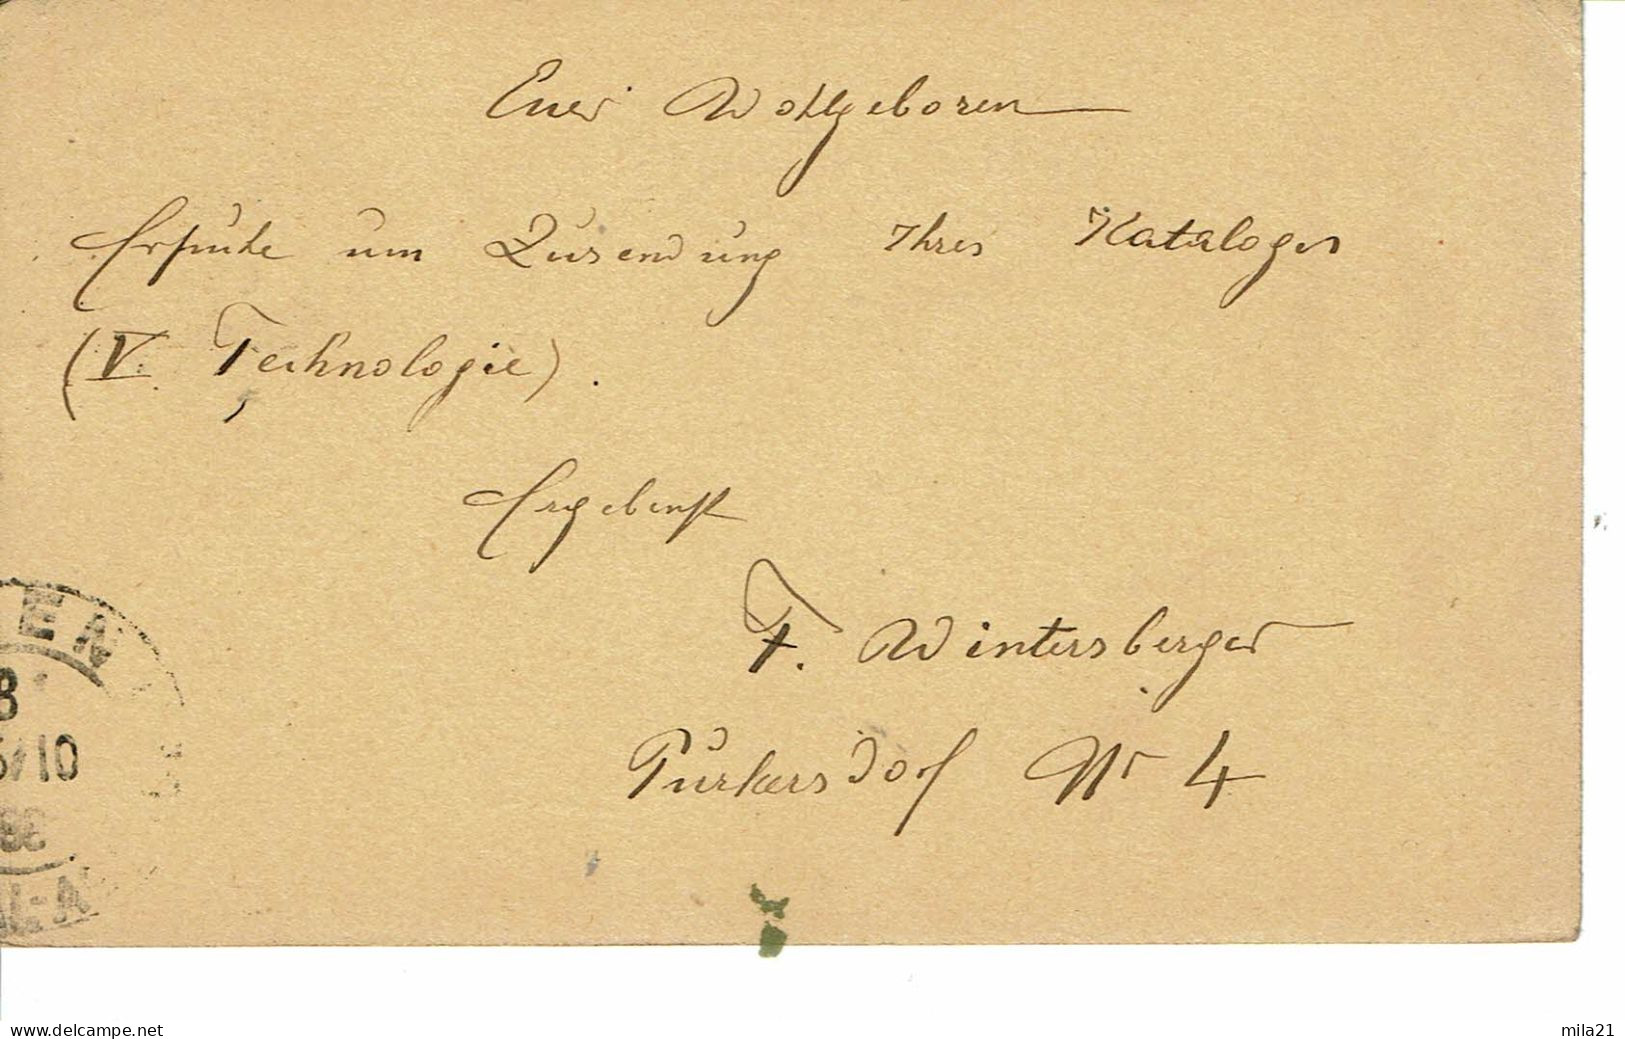 Euer Wohlgeboren
Ersuche um Zusendung Ihres Kataloges
(V. Technologie).
Ergebenst
F. Wintersberger
Purkersdorf Nr 4
EN
8
5/10
www.delcampe.net
mila21